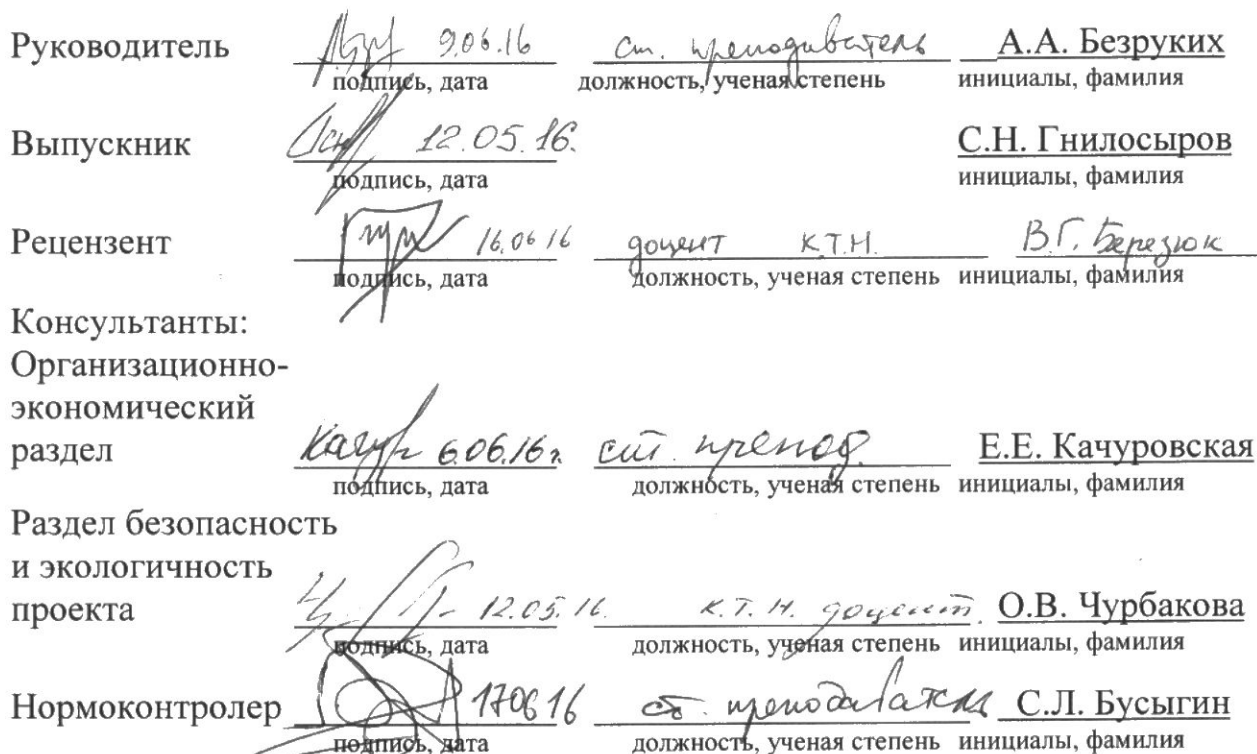 Руководитель 9.06.16 ст. преподаватель А.А. Безруких
подпись, дата должность, ученая степень инициалы, фамилия
Выпускник 12.05.16. С.Н. Гнилосыров
подпись, дата инициалы, фамилия
Рецензент 16.06 16 доцент К.Т.Н. В.Г. Березюк
подпись, дата должность, ученая степень инициалы, фамилия
Консультанты:
Организационно-
экономический
раздел 6.06.16г. ст. препод. Е.Е. Качуровская
подпись, дата должность, ученая степень инициалы, фамилия
Раздел безопасность
и экологичность
проекта 12.05.16. к.т.н. доцент О.В. Чурбакова
подпись, дата должность, ученая степень инициалы, фамилия
Нормоконтролер 170616 ст. преподаватель С.Л. Бусыгин
подпись, дата должность, ученая степень инициалы, фамилия